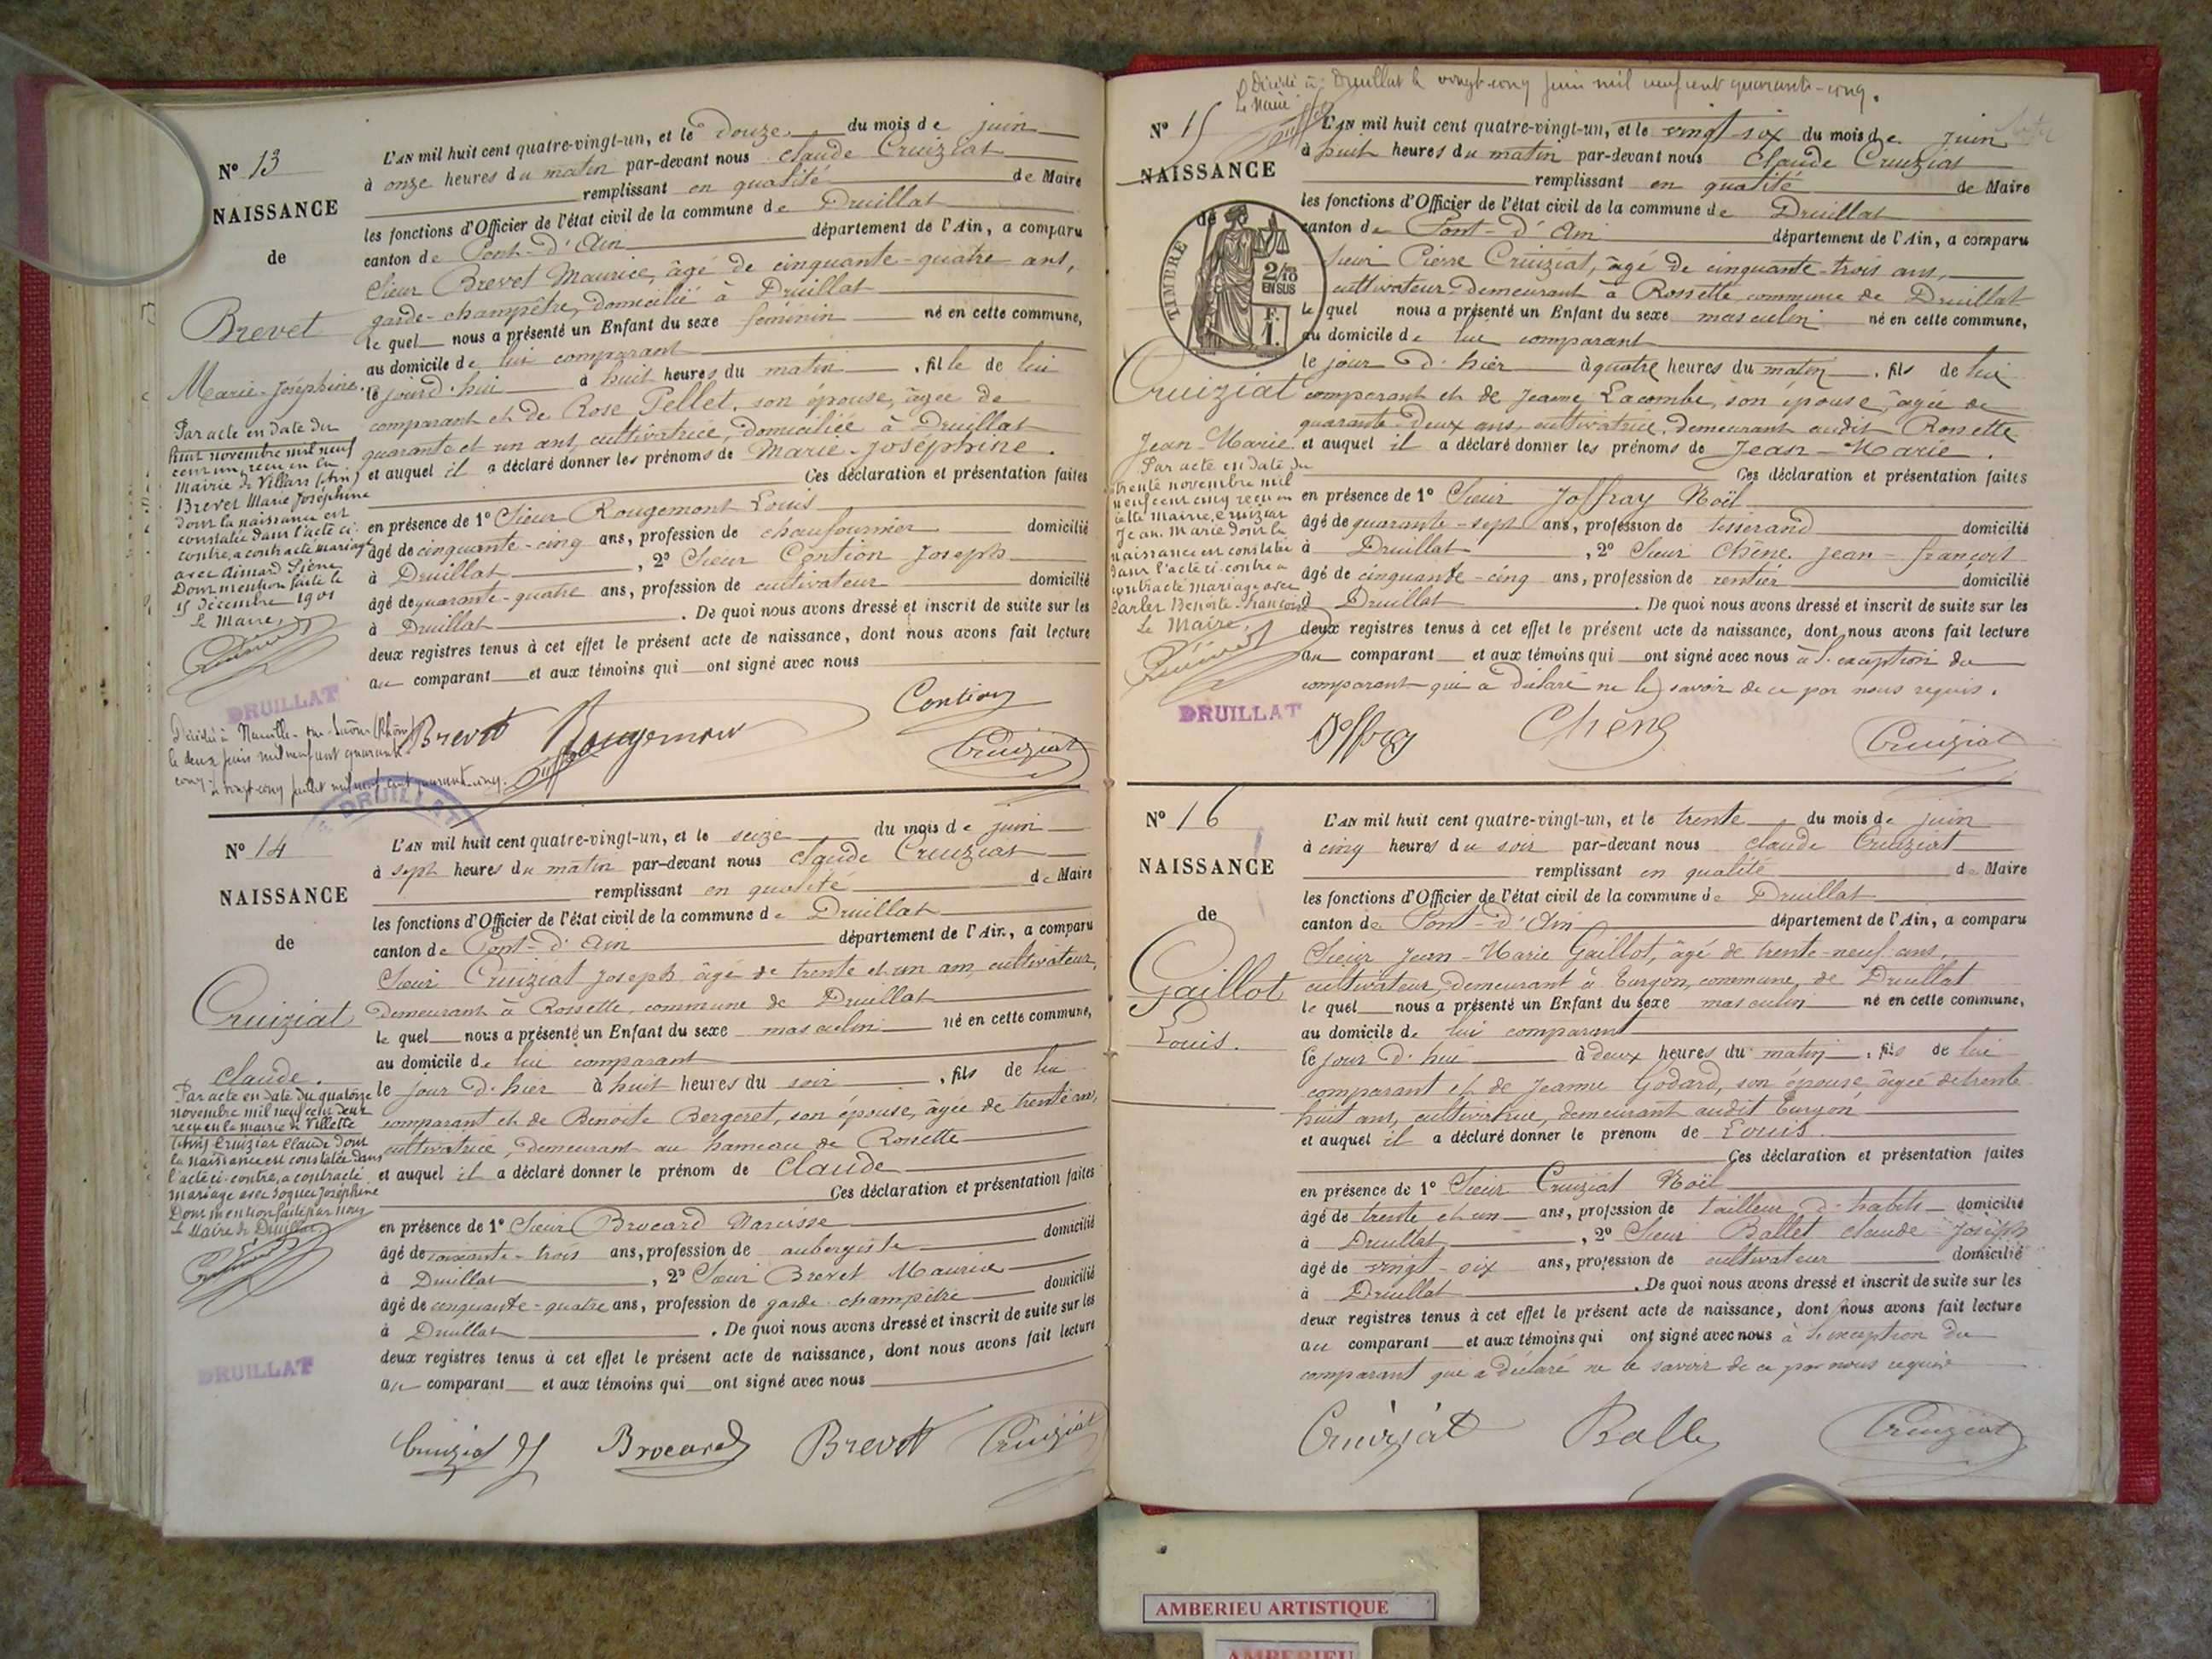 N° 13
NAISSANCE
de
Brevet
Marie-Joséphine.
Par acte en date du
huit novembre mil neuf
cent un, reçu en la
Mairie de Villars (Ain)
Brevet Marie Joséphine
dont la naissance est
constatée dans l'acte ci-
contre, a contracté mariage
avec
Dont mention faite le
15 décembre 1901
Le Maire,
DRUILLAT
Décédée à Neuville-sur-Saône (Rhône)
le deux juin mil neuf cent quarante
cinq. Le vingt-cinq juillet mil neuf cent quarante cinq.
DRUILLAT
L'AN mil huit cent quatre-vingt-un, et le douze du mois de juin
à onze heures du matin par-devant nous Claude Cruiziat
remplissant en qualité de Maire
les fonctions d'Officier de l'état civil de la commune de Druillat
canton de Pont-d'Ain département de l'Ain, a comparu
Sieur Brevet Maurice, âgé de cinquante-quatre ans,
garde-champêtre, domicilié à Druillat
le quel nous a présenté un Enfant du sexe féminin né en cette commune,
au domicile de lui comparant
le jourd'hui à huit heures du matin, fille de lui
comparant et de Rose Pellet, son épouse, âgée de
quarante et un ans, cultivatrice, domiciliée à Druillat
et auquel il a déclaré donner les prénoms de Marie-Joséphine.
Ces déclaration et présentation faites
en présence de 1° Sieur Rougemont Louis
âgé de cinquante-cinq ans, profession de chaufournier domicilié
à Druillat, 2° Sieur Contion Joseph
âgé de quarante-quatre ans, profession de cultivateur domicilié
à Druillat. De quoi nous avons dressé et inscrit de suite sur les
deux registres tenus à cet effet le présent acte de naissance, dont nous avons fait lecture
au comparant et aux témoins qui ont signé avec nous
Brevet Rougemont Contion
Cruiziat
N° 14
NAISSANCE
de
Cruiziat
Claude.
Par acte en date du quatorze
novembre mil neuf cent deux
reçu en la mairie de Villette
(Ain) Cruiziat Claude dont
la naissance est constatée dans
l'acte ci-contre, a contracté
mariage avec Joséphine
Dont mention faite par nous
Le Maire de Druillat
DRUILLAT
L'AN mil huit cent quatre-vingt-un, et le seize du mois de juin
à sept heures du matin par-devant nous Claude Cruiziat
remplissant en qualité de Maire
les fonctions d'Officier de l'état civil de la commune de Druillat
canton de Pont-d'Ain département de l'Ain, a comparu
Sieur Cruiziat Joseph âgé de trente et un ans, cultivateur,
demeurant à Rossette, commune de Druillat
le quel nous a présenté un Enfant du sexe masculin né en cette commune,
au domicile de lui comparant
le jour d'hier à huit heures du soir, fils de lui
comparant et de Benoite Bergeret, son épouse, âgée de trente ans,
cultivatrice, demeurant au hameau de Rossette
et auquel il a déclaré donner le prénom de Claude
Ces déclaration et présentation faites
en présence de 1° Sieur Brocard Narcisse
âgé de soixante-trois ans, profession de aubergiste domicilié
à Druillat, 2° Sieur Brevet Maurice
âgé de cinquante-quatre ans, profession de garde champêtre domicilié
à Druillat. De quoi nous avons dressé et inscrit de suite sur les
deux registres tenus à cet effet le présent acte de naissance, dont nous avons fait lecture
au comparant et aux témoins qui ont signé avec nous
Cruiziat J Brocard Brevet Cruiziat
Décédé à Druillat le vingt-cinq juin mil neuf cent quarante-cinq.
Le Maire
N° 15
NAISSANCE
de
TIMBRE
2/10 EN SUS
F. 1.
Cruiziat
Jean-Marie
Par acte en date du
trente novembre mil
neuf cent cinq reçu en
cette Mairie, Cruiziat
Jean-Marie dont la
naissance est constatée
dans l'acte ci-contre a
contracté mariage avec
Carlet Benoite Françoise
Le Maire,
DRUILLAT
L'AN mil huit cent quatre-vingt-un, et le vingt-six du mois de juin
à huit heures du matin par-devant nous Claude Cruiziat
remplissant en qualité de Maire
les fonctions d'Officier de l'état civil de la commune de Druillat
canton de Pont-d'Ain département de l'Ain, a comparu
Sieur Pierre Cruiziat, âgé de cinquante-trois ans,
cultivateur demeurant à Rossette commune de Druillat
le quel nous a présenté un Enfant du sexe masculin né en cette commune,
au domicile de lui comparant
le jour d'hier à quatre heures du matin, fils de lui
comparant et de Jeanne Lacombe, son épouse, âgée de
quarante-deux ans, cultivatrice, demeurant audit Rossette
et auquel il a déclaré donner les prénoms de Jean-Marie.
Ces déclaration et présentation faites
en présence de 1° Sieur Joffray Noël
âgé de quarante-sept ans, profession de tisserand domicilié
à Druillat, 2° Sieur Chêne Jean-François
âgé de cinquante-cinq ans, profession de rentier domicilié
à Druillat. De quoi nous avons dressé et inscrit de suite sur les
deux registres tenus à cet effet le présent acte de naissance, dont nous avons fait lecture
au comparant et aux témoins qui ont signé avec nous à l'exception du
comparant qui a déclaré ne le savoir de ce par nous requis.
Joffray Chêne Cruiziat
N° 16
NAISSANCE
de
Gaillot
Louis.
L'AN mil huit cent quatre-vingt-un, et le trente du mois de juin
à cinq heures du soir par-devant nous Claude Cruiziat
remplissant en qualité de Maire
les fonctions d'Officier de l'état civil de la commune de Druillat
canton de Pont-d'Ain département de l'Ain, a comparu
Sieur Jean-Marie Gaillot, âgé de trente-neuf ans,
cultivateur, demeurant à Turgon, commune de Druillat
le quel nous a présenté un Enfant du sexe masculin né en cette commune,
au domicile de lui comparant
le jour d'hui à deux heures du matin, fils de lui
comparant et de Jeanne Godard, son épouse âgée de trente
huit ans, cultivatrice, demeurant audit Turgon
et auquel il a déclaré donner le prénom de Louis
Ces déclaration et présentation faites
en présence de 1° Sieur Cruiziat Noël
âgé de trente et un ans, profession de tailleur d'habits domicilié
à Druillat, 2° Sieur Ballet Claude Joseph
âgé de vingt-six ans, profession de cultivateur domicilié
à Druillat. De quoi nous avons dressé et inscrit de suite sur les
deux registres tenus à cet effet le présent acte de naissance, dont nous avons fait lecture
au comparant et aux témoins qui ont signé avec nous à l'exception du
comparant qui a déclaré ne le savoir de ce par nous requis
Cruiziat Ballet Cruiziat
AMBERIEU ARTISTIQUE
AMBERIEU